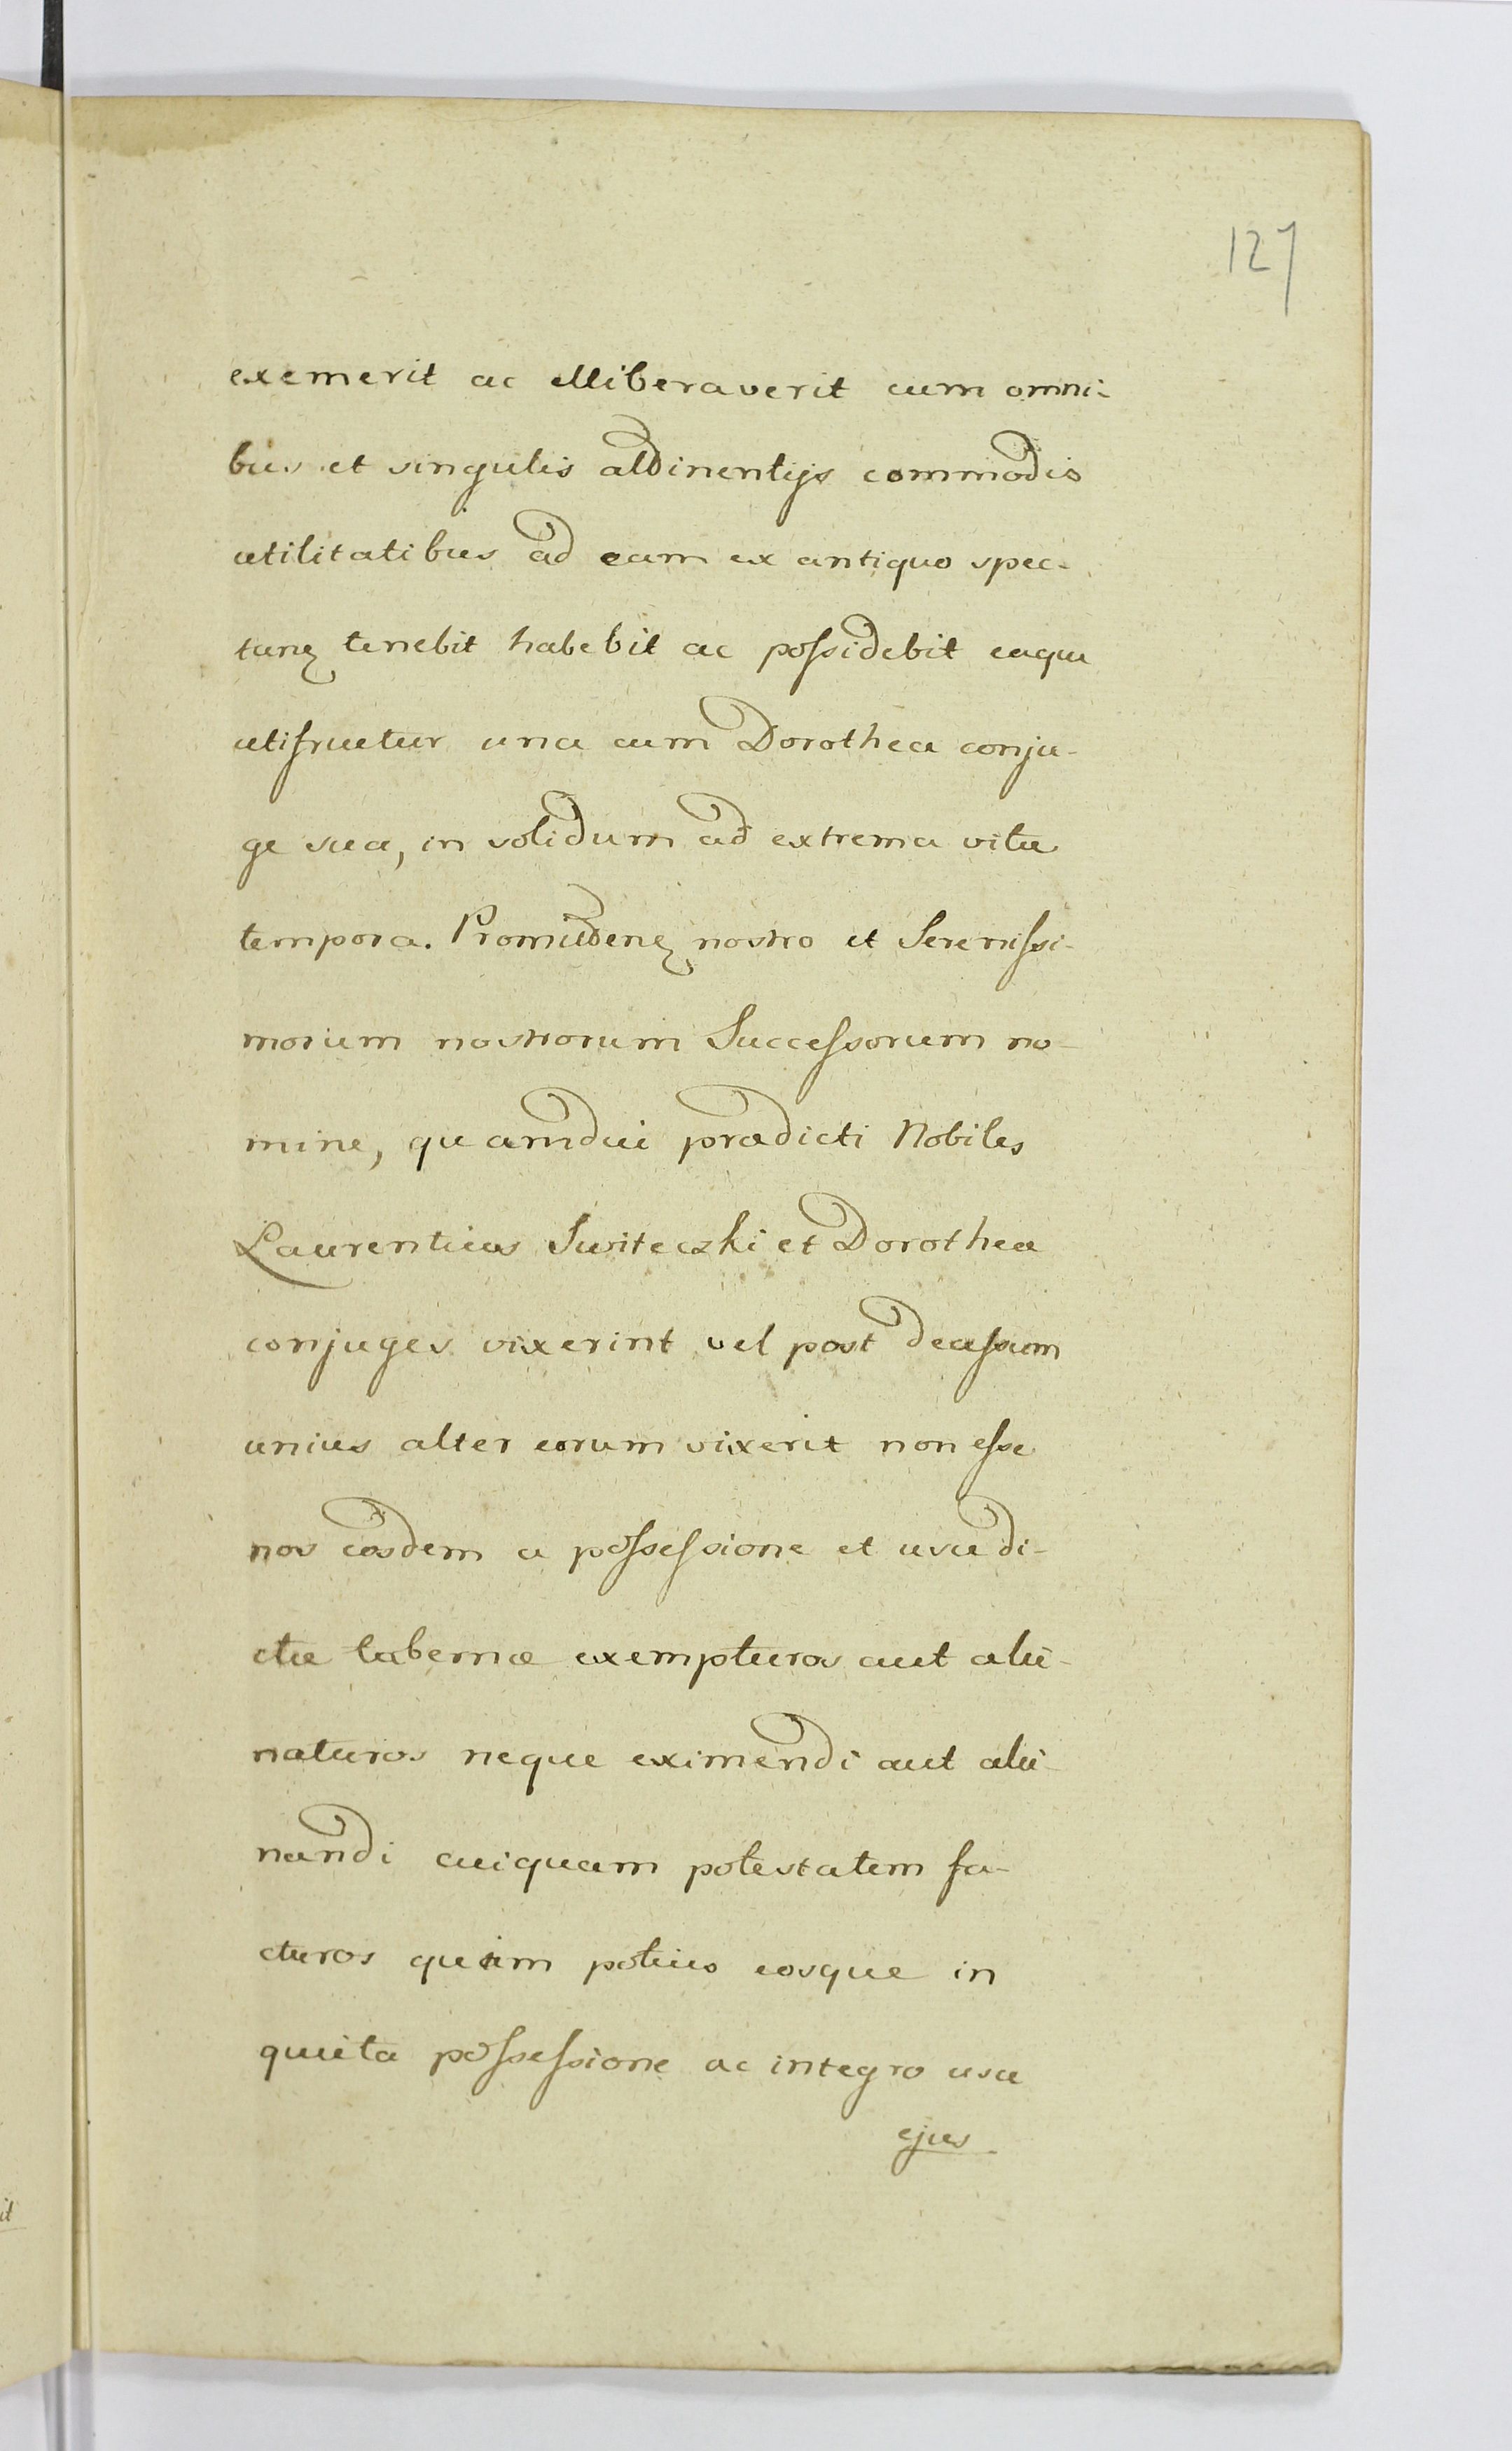 127
exemerit ac elliberaverit cum omni-
bus et singulis addinentijs commodis
utilitatibus ad eam ex antiquo spec-
tanꝫ tenebit habebit ac possidebit eaque
utifruetur una cum Dorothea conju-
ge sua, in solidum ad extrema vitæ
tempora. nostro et Serenissi-
morum nostrorum Successorum no-
mine, quamdiu prædicti Nobiles
Laurentius Switeczki et Dorothea
conjuges vixerint vel post decessum
unius alter eorum vixerit non esse
nos eosdem a possessione et usu di-
ctæ tabernæ exempturos aut alie-
naturos neque eximendi aut alie-
nandi cuiquam potestatem fa-
cturos quám potius eosque in
quieta possessione ac integro usu
ejus
it